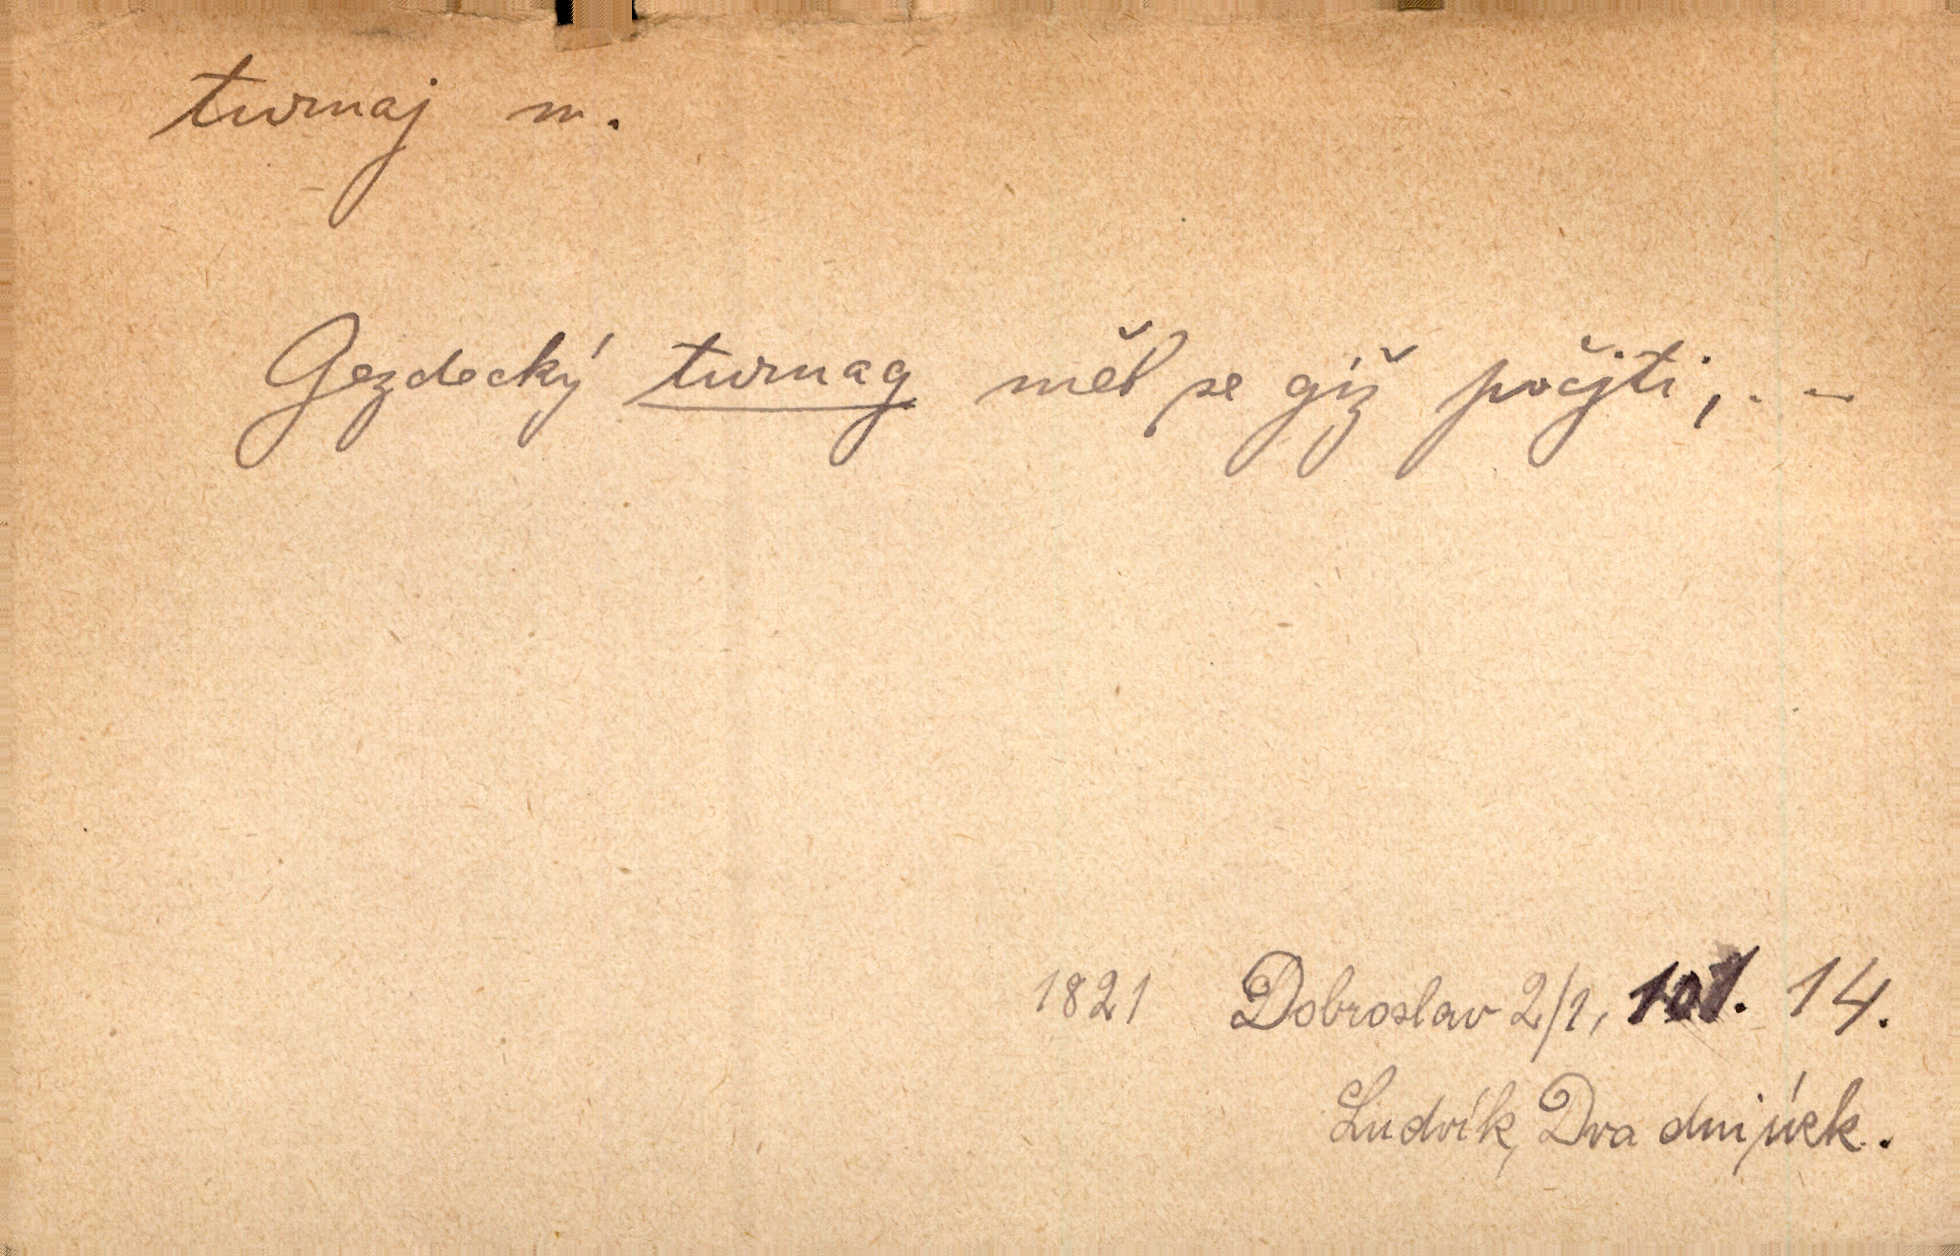 turnaj m.
Gezdecký turnag měl se giž počjti, . –
1821 Dobroslav 2/1, 101. 14.
Ludvík, Dva dni